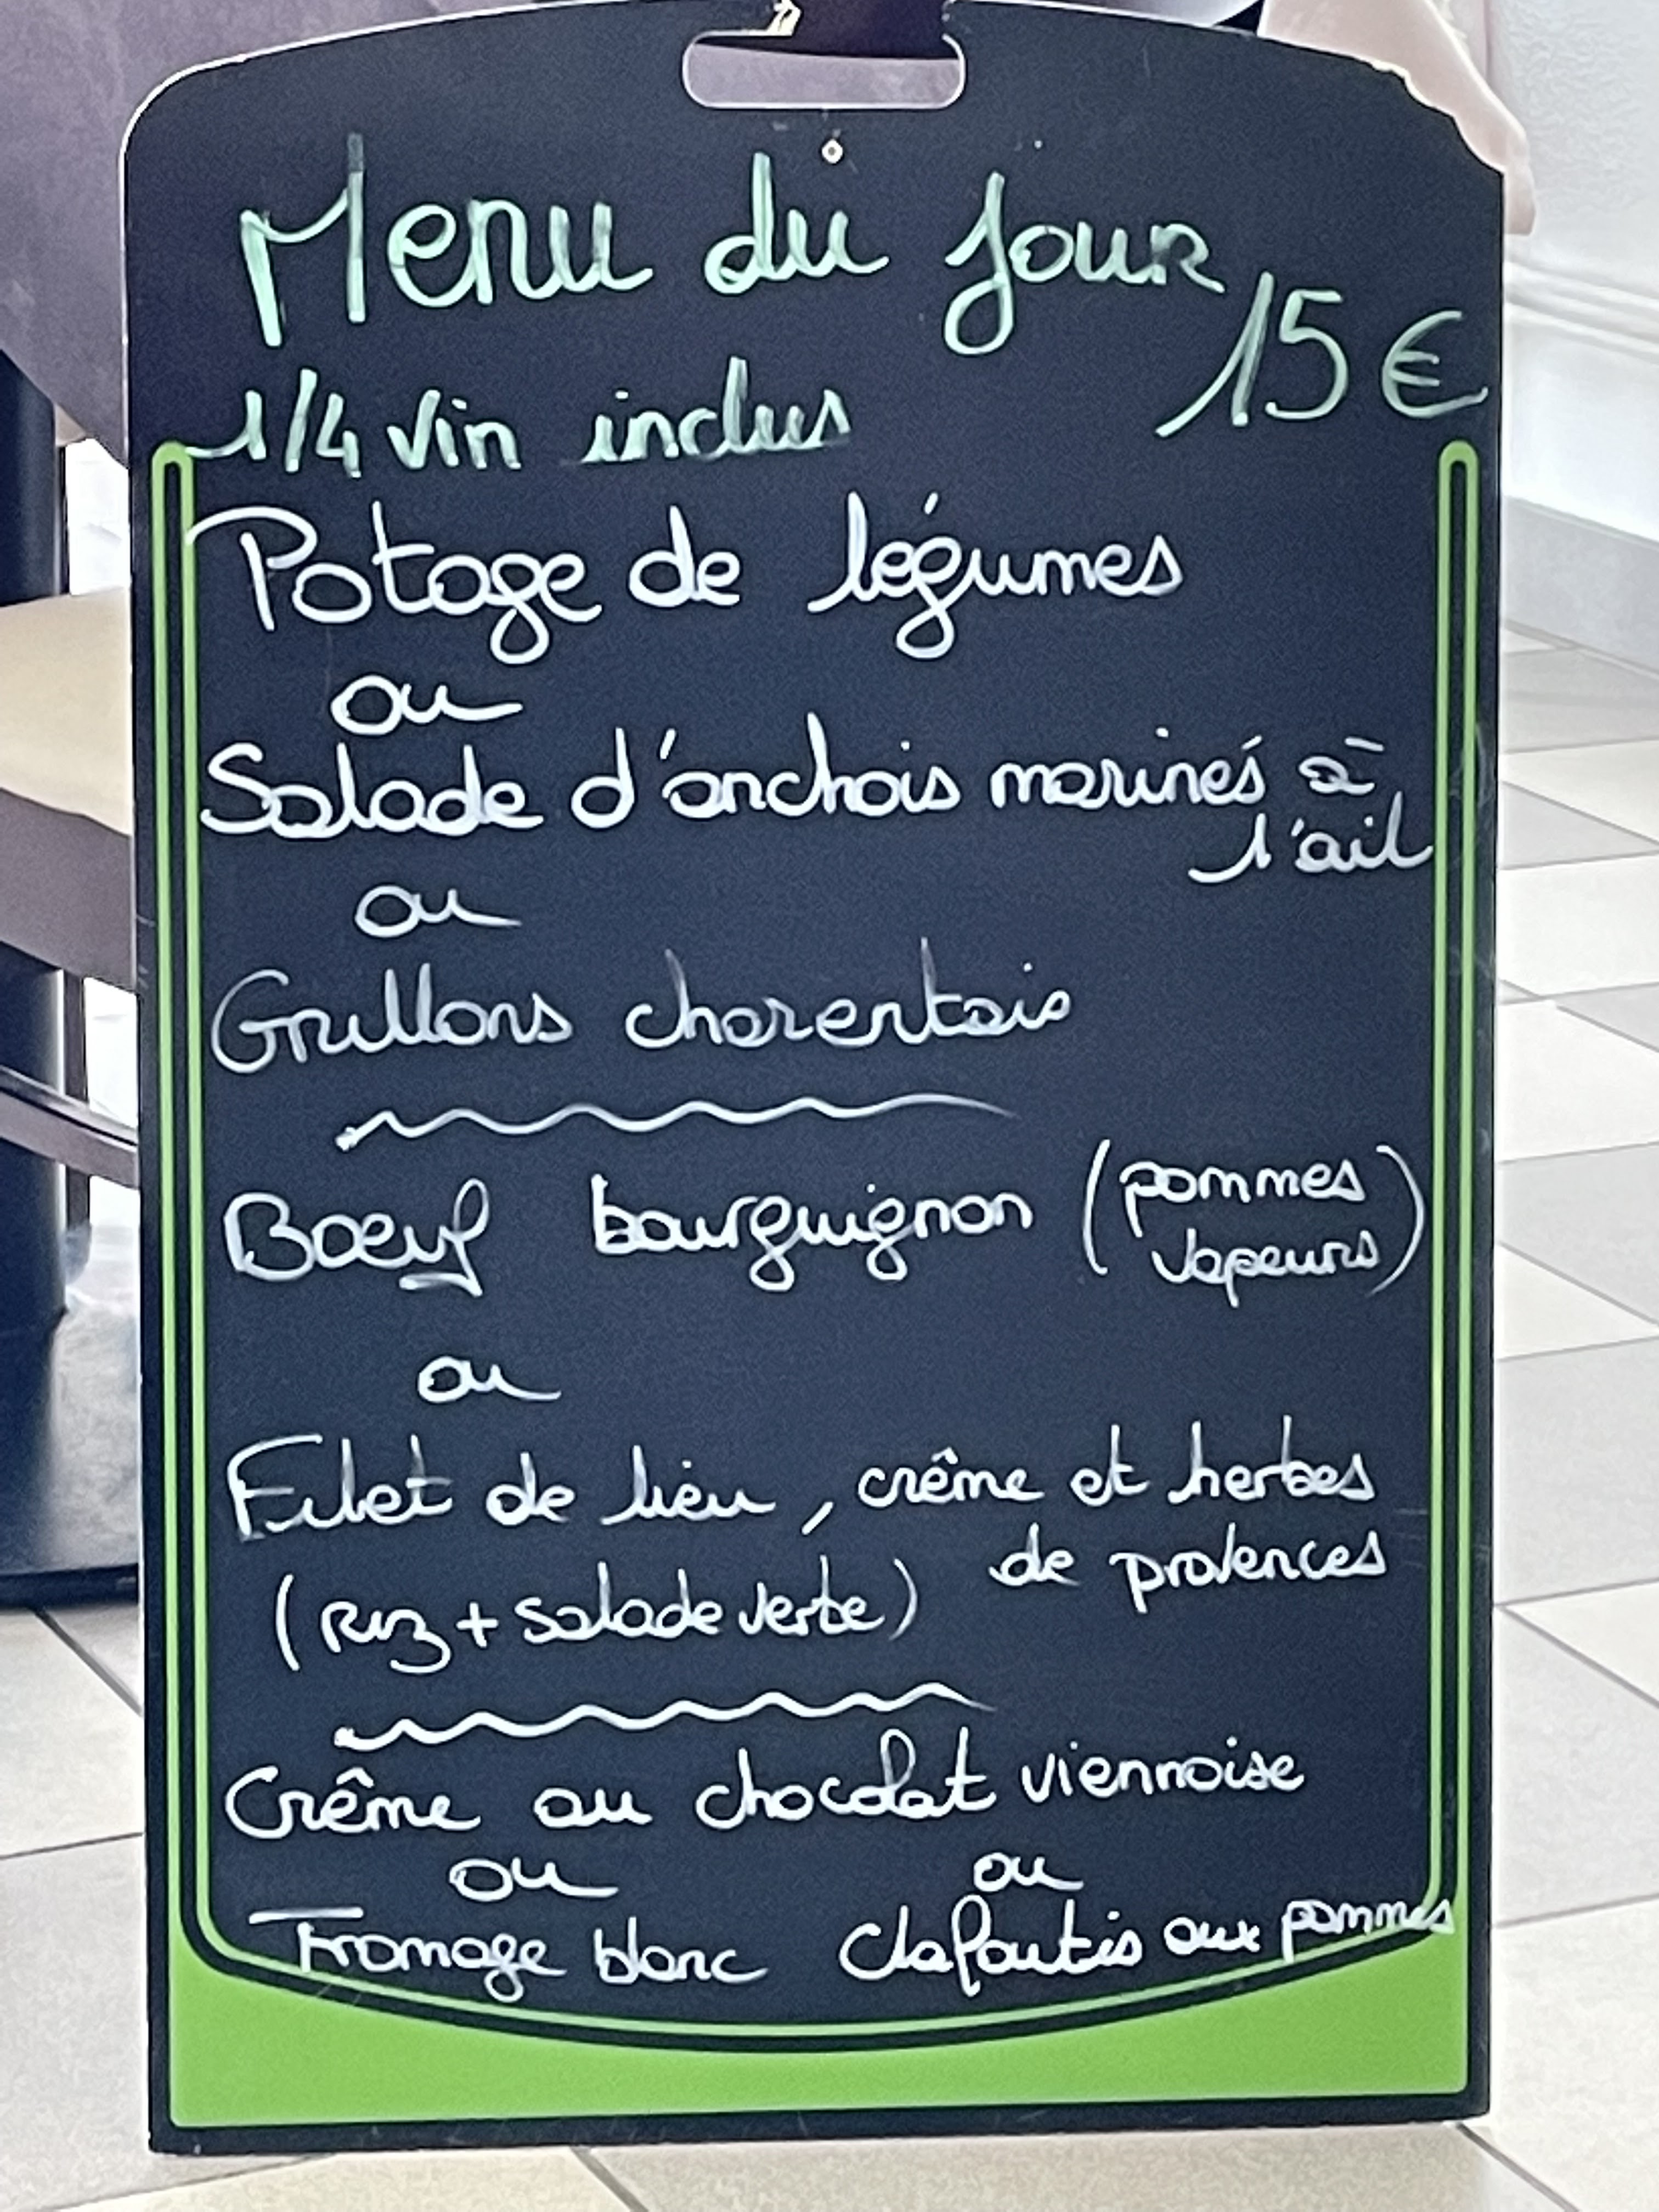 Menu du jour
15€
1/4 vin inclus
Potage de légumes
ou
Salade d'anchois marinés à
l'ail
ou
Grillons charentais
Boeuf bourguignon (pommes
vapeurs)
ou
Filet de lieu, crême et herbes
de provences
(Riz + salade verte)
Crême au chocolat viennoise
ou ou
Fromage blanc Clafoutis aux pommes